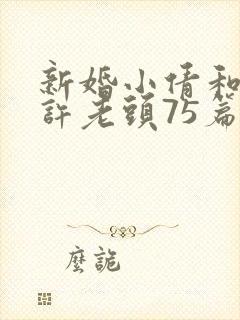 新婚小倩和
許老頭75篇
麼詭